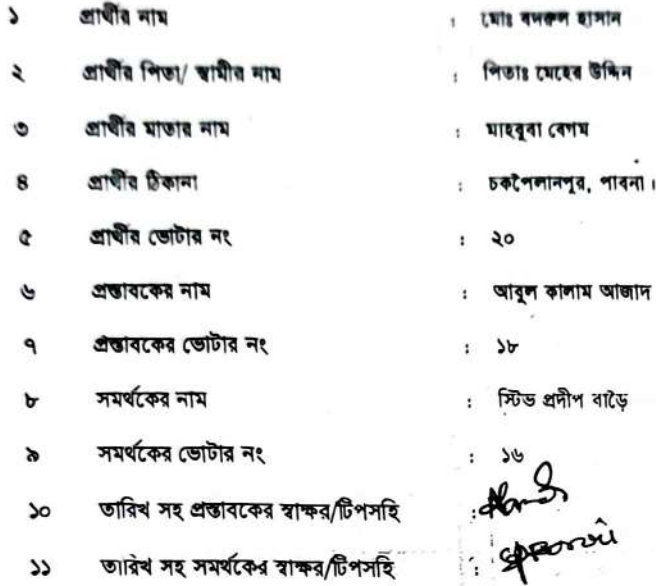 ১ প্রার্থীর নাম : মোঃ বদরুল হাসান
২ প্রার্থীর পিতা/ স্বামীর নাম : পিতাঃ মেহের উদ্দিন
৩ প্রার্থীর মাতার নাম : মাহবুবা বেগম
৪ প্রার্থীর ঠিকানা : চকপৈলানপুর, পাবনা।
৫ প্রার্থীর ভোটার নং : ২০
৬ প্রস্তাবকের নাম : আবুল কালাম আজাদ
৭ প্রস্তাবকের ভোটার নং : ১৮
৮ সমর্থকের নাম : স্টিভ প্রদীপ বাড়ৈ
৯ সমর্থকের ভোটার নং : ১৬
১০ তারিখ সহ প্রস্তাবকের স্বাক্ষর/টিপসহি :
১১ তারিখ সহ সমর্থকের স্বাক্ষর/টিপসহি :